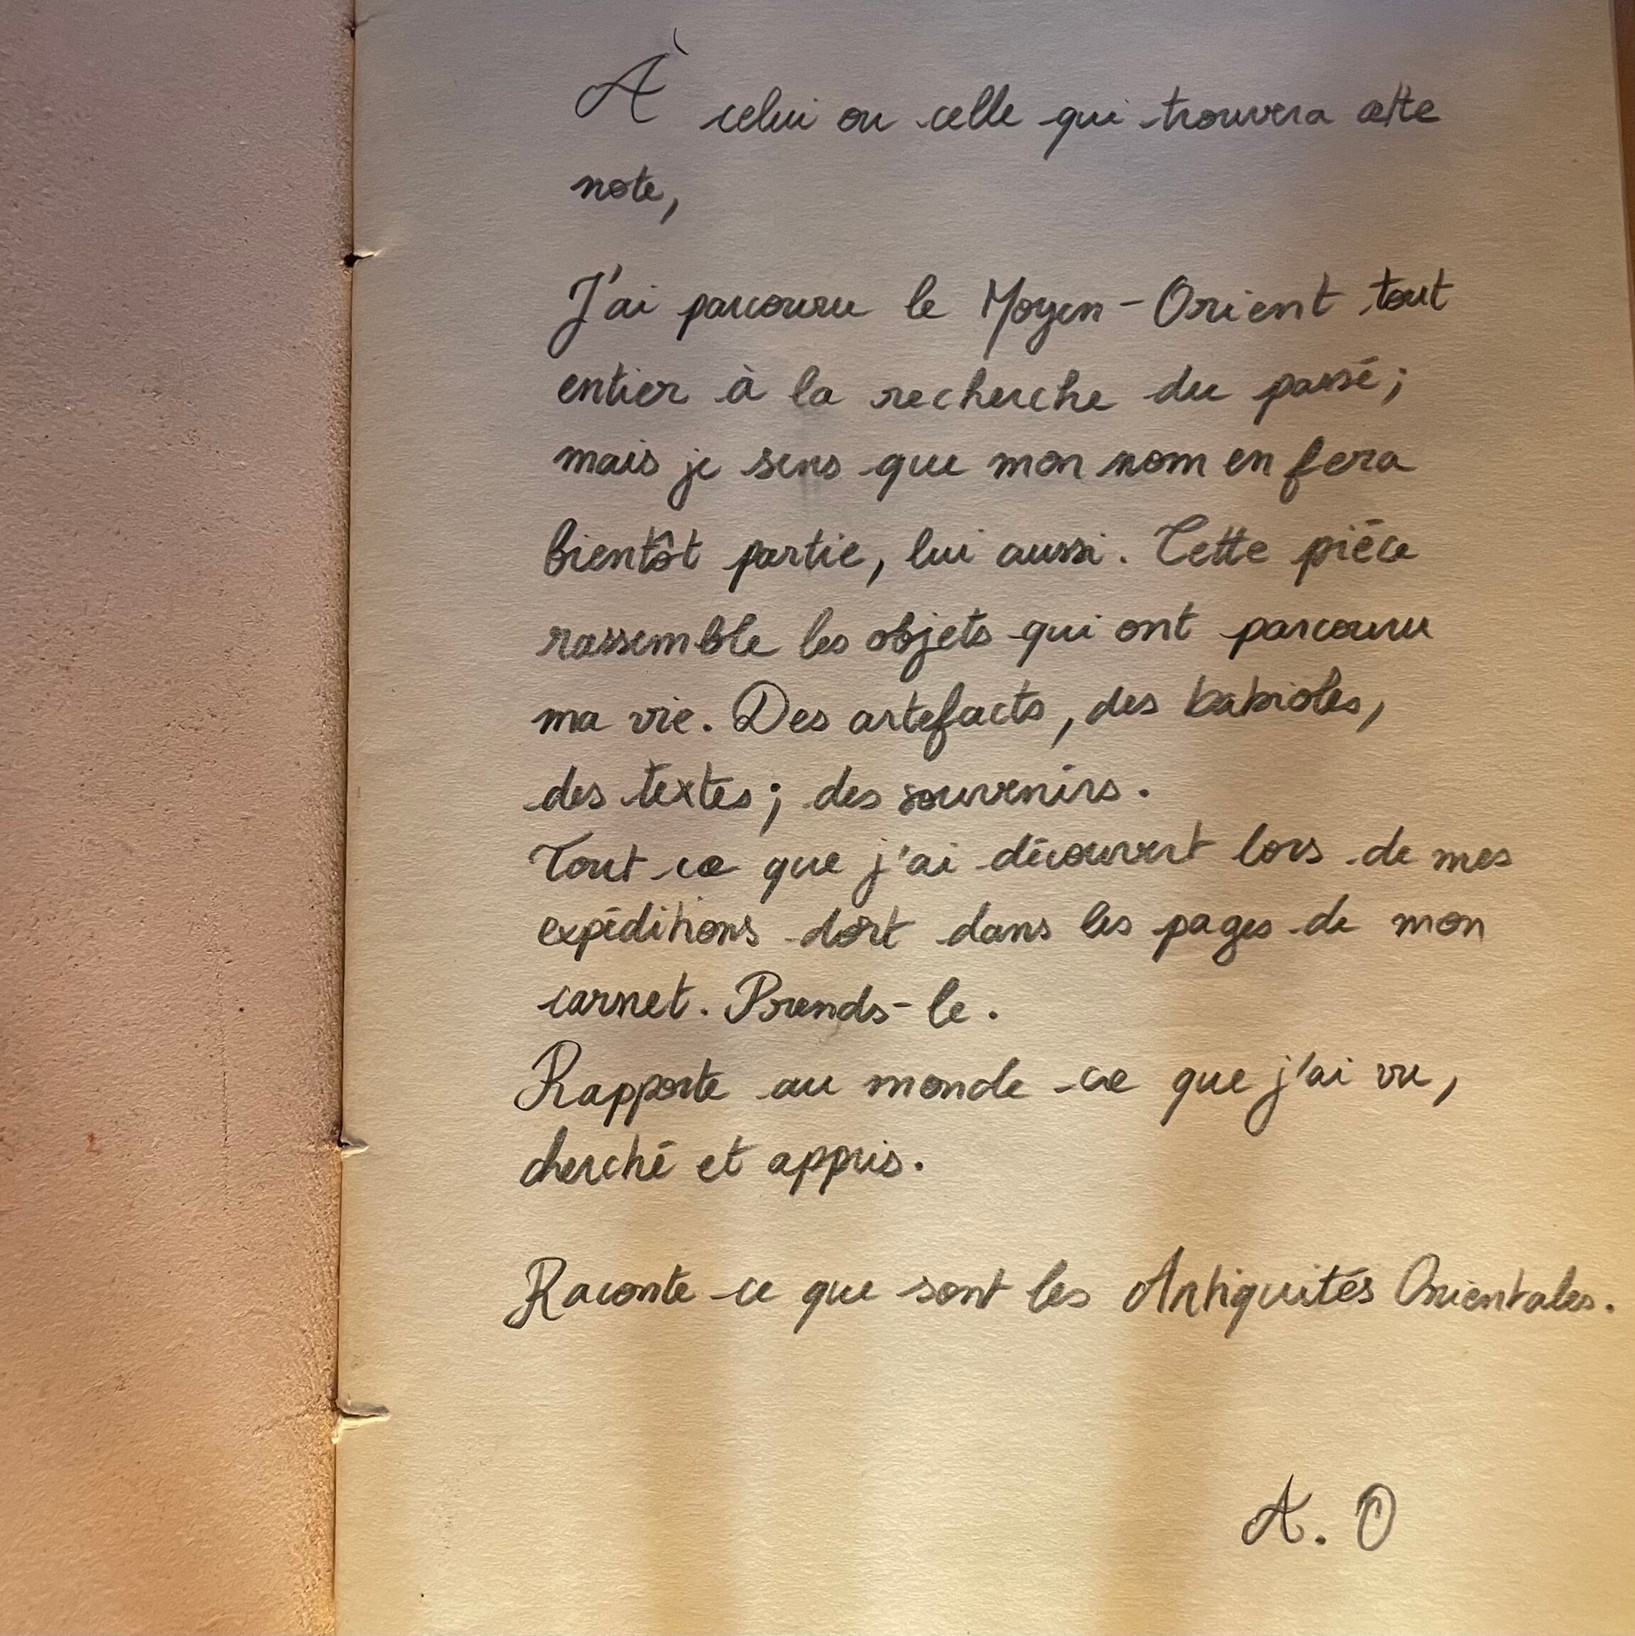 À celui ou celle qui trouvera cette
note,
J'ai parcouru le Moyen-Orient tout
entier à la recherche du passé;
mais je sens que mon nom en fera
bientôt partie, lui aussi. Cette pièce
rassemble les objets qui ont parcouru
ma vie. Des artefacts, des babioles,
des textes; des souvenirs.
Tout ce que j'ai découvert lors de mes
expéditions dort dans les pages de mon
carnet. Prends-le.
Rapporte au monde ce que j'ai vu,
cherché et appris.
Raconte ce que sont les Antiquités Orientales.
A. O